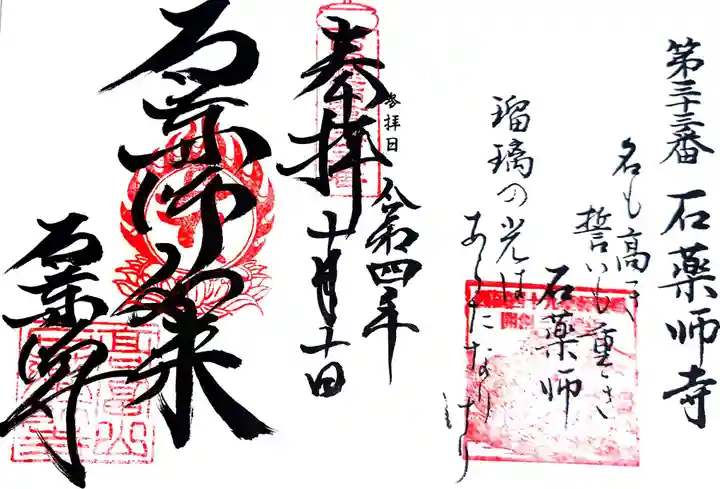 第三十三番 石薬師寺
名も高き
誓いも重き
石薬師
瑠璃の光は
あらたなりけり
参拝日
令和四年
十月十一日
奉拝
石薬師如来
石薬師寺
高富山